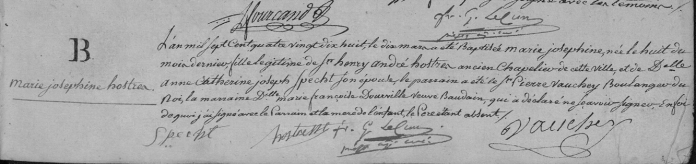 fr. G. Lelun
B
marie josephine hostrex
L'an mil sept Cent quatre vingt dix huit, le dix mars a été Baptisée marie josephine, née le huit du
mois dernier fille legitime de Sr henry andré hostrex ancien Chapelier de cette Ville, et de Delle
anne Catherine joseph Specht son epouse, le parrain a été Sr Pierre Vauchey Boulanger du
Roi, la maraine Delle marie françoise Dourville Veuve Baudain, qui a déclaré ne sçavoir signer. En foi
de quoi j'ai signé avec le Parrain et la mere de l'enfant, le Pere étant absent.
Specht
fr. G. Lelun
Vauchey